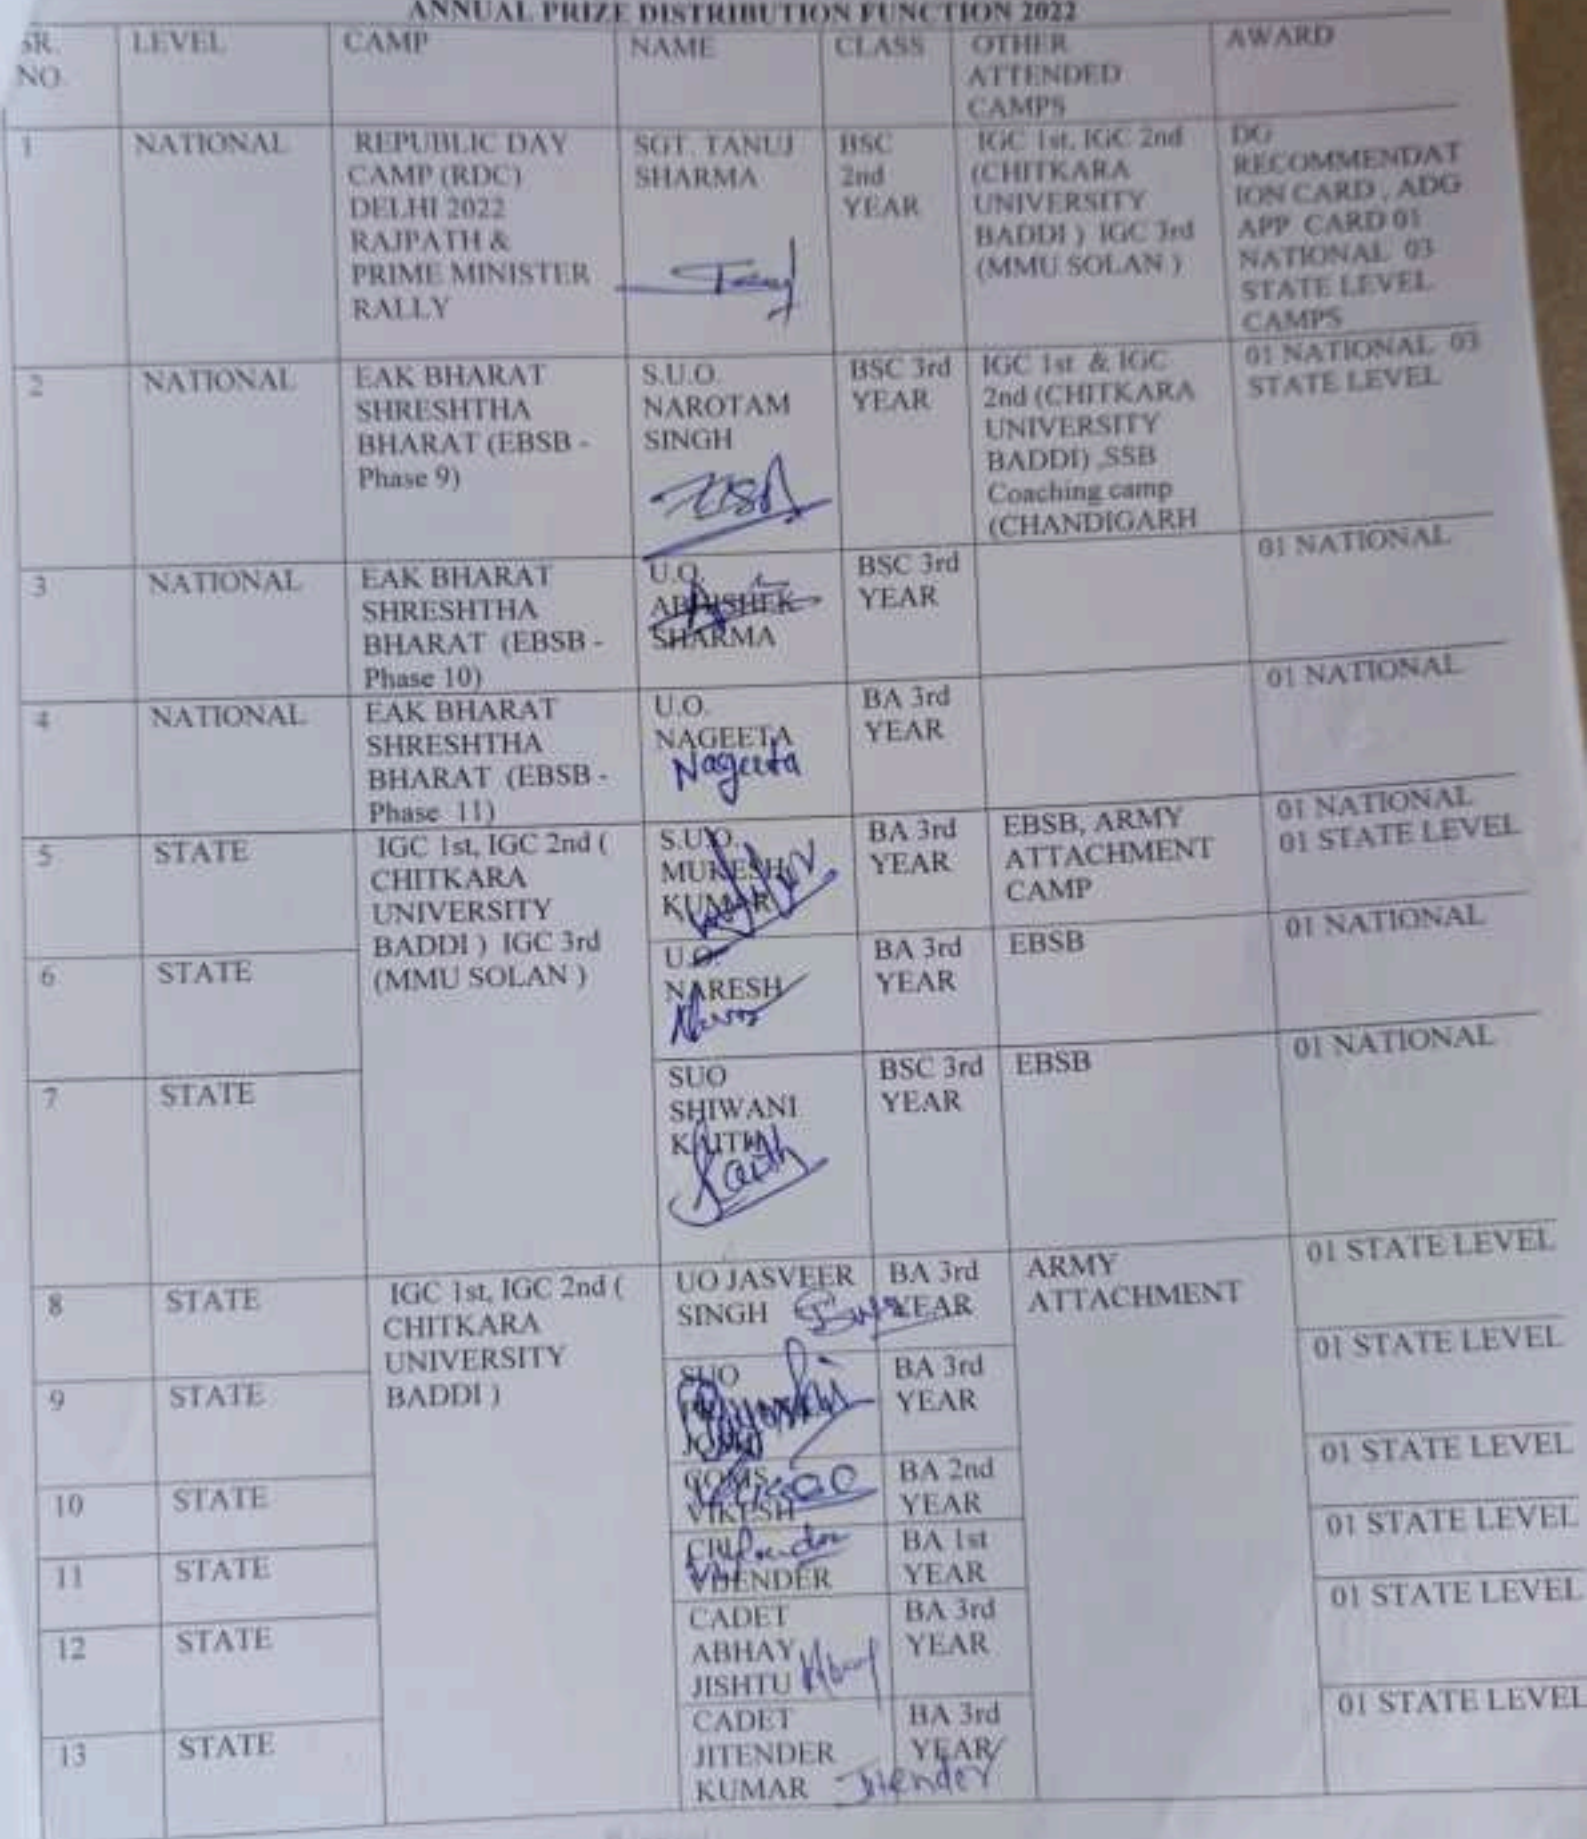 ANNUAL PRIZE DISTRIBUTION FUNCTION 2022
SR. NO. LEVEL CAMP NAME CLASS OTHER ATTENDED CAMPS AWARD
1 NATIONAL
REPUBLIC DAY
CAMP (RDC)
DELHI 2022
RAJPATH &
PRIME MINISTER
RALLY
SGT. TANUJ
SHARMA
BSC
2nd
YEAR
IGC 1st, IGC 2nd
(CHITKARA
UNIVERSITY
BADDI ) IGC 3rd
(MMU SOLAN )
DG
RECOMMENDAT
ION CARD , ADG
APP CARD 01
NATIONAL 03
STATE LEVEL
CAMPS
2 NATIONAL
EAK BHARAT
SHRESHTHA
BHARAT (EBSB -
Phase 9)
S.U.O.
NAROTAM
SINGH
BSC 3rd
YEAR
IGC 1st & IGC
2nd (CHITKARA
UNIVERSITY
BADDI) ,SSB
Coaching camp
(CHANDIGARH
01 NATIONAL 03
STATE LEVEL
3 NATIONAL
EAK BHARAT
SHRESHTHA
BHARAT (EBSB -
Phase 10)
U.O.
ABHISHEK
SHARMA
BSC 3rd
YEAR
01 NATIONAL
4 NATIONAL
EAK BHARAT
SHRESHTHA
BHARAT (EBSB -
Phase 11)
U.O.
NAGEETA
Nageeta
BA 3rd
YEAR
01 NATIONAL
5 STATE
IGC 1st, IGC 2nd (
CHITKARA
UNIVERSITY
BADDI ) IGC 3rd
(MMU SOLAN )
S.U.O.
MUKESH
KUMAR
BA 3rd
YEAR
EBSB, ARMY
ATTACHMENT
CAMP
01 NATIONAL
01 STATE LEVEL
6 STATE
U.O.
NARESH
BA 3rd
YEAR
EBSB
01 NATIONAL
7 STATE
SUO
SHIWANI
BSC 3rd
YEAR
EBSB
01 NATIONAL
8 STATE
IGC 1st, IGC 2nd (
CHITKARA
UNIVERSITY
BADDI )
UO JASVEER
SINGH
BA 3rd
YEAR
ARMY
ATTACHMENT
01 STATE LEVEL
9 STATE
SUO
BA 3rd
YEAR
01 STATE LEVEL
10 STATE
VIKESH
BA 2nd
YEAR
01 STATE LEVEL
11 STATE
VIJENDER
BA 1st
YEAR
01 STATE LEVEL
12 STATE
CADET
ABHAY
JISHTU
BA 3rd
YEAR
01 STATE LEVEL
13 STATE
CADET
JITENDER
KUMAR
Jitender
BA 3rd
YEAR
01 STATE LEVEL